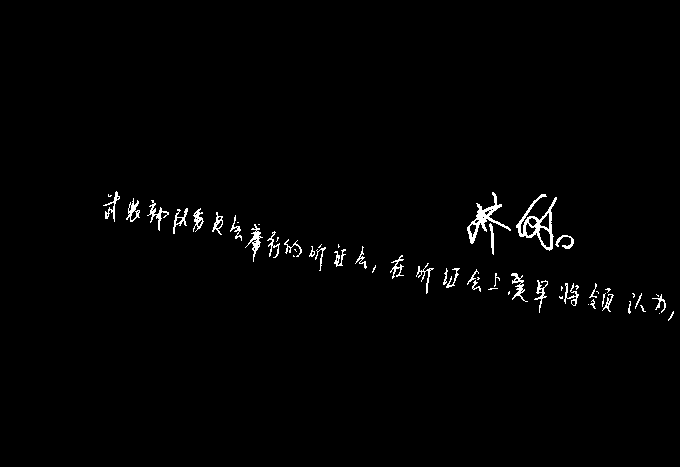 的。
武装部队委员会举行的听证会,在听证会上美军将领认为,